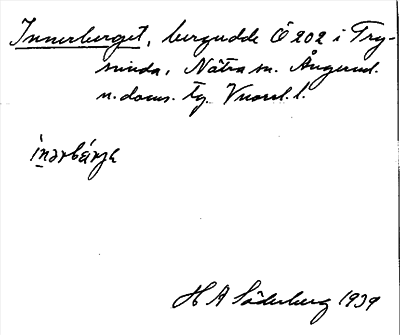 Innerberget, bergudde Ö 202 i Try-
sunda, Nätra sn. Ångerml.
n. doms. tg. Vnorrl. l.
H A Söderberg 1939